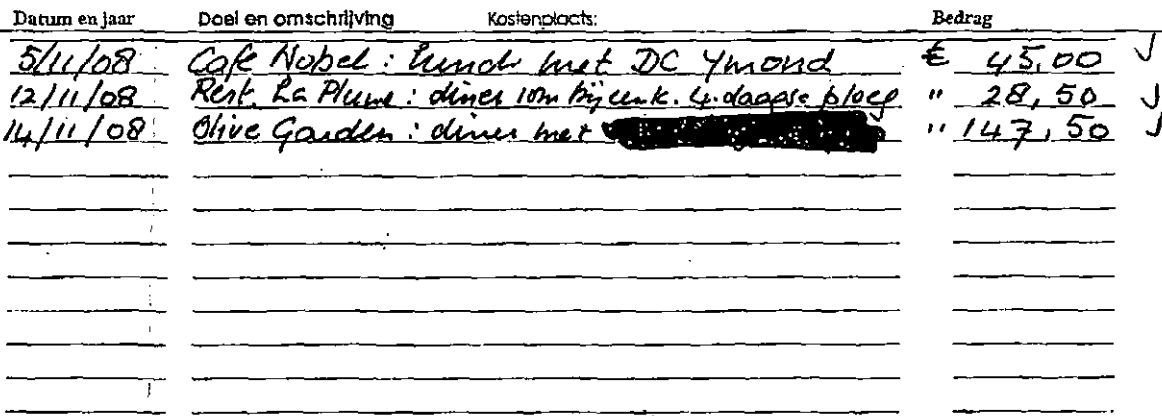 Datum en jaar Doel en omschrijving Kostenplaats: Bedrag
5/11/08 Café Nobel : lunch met DC Ymond € 45,00
12/11/08 Rest. La Plume : diner ivm bijeenk. 4-daagse ploeg " 28,50
14/11/08 Olive Garden : diner met " 147,50